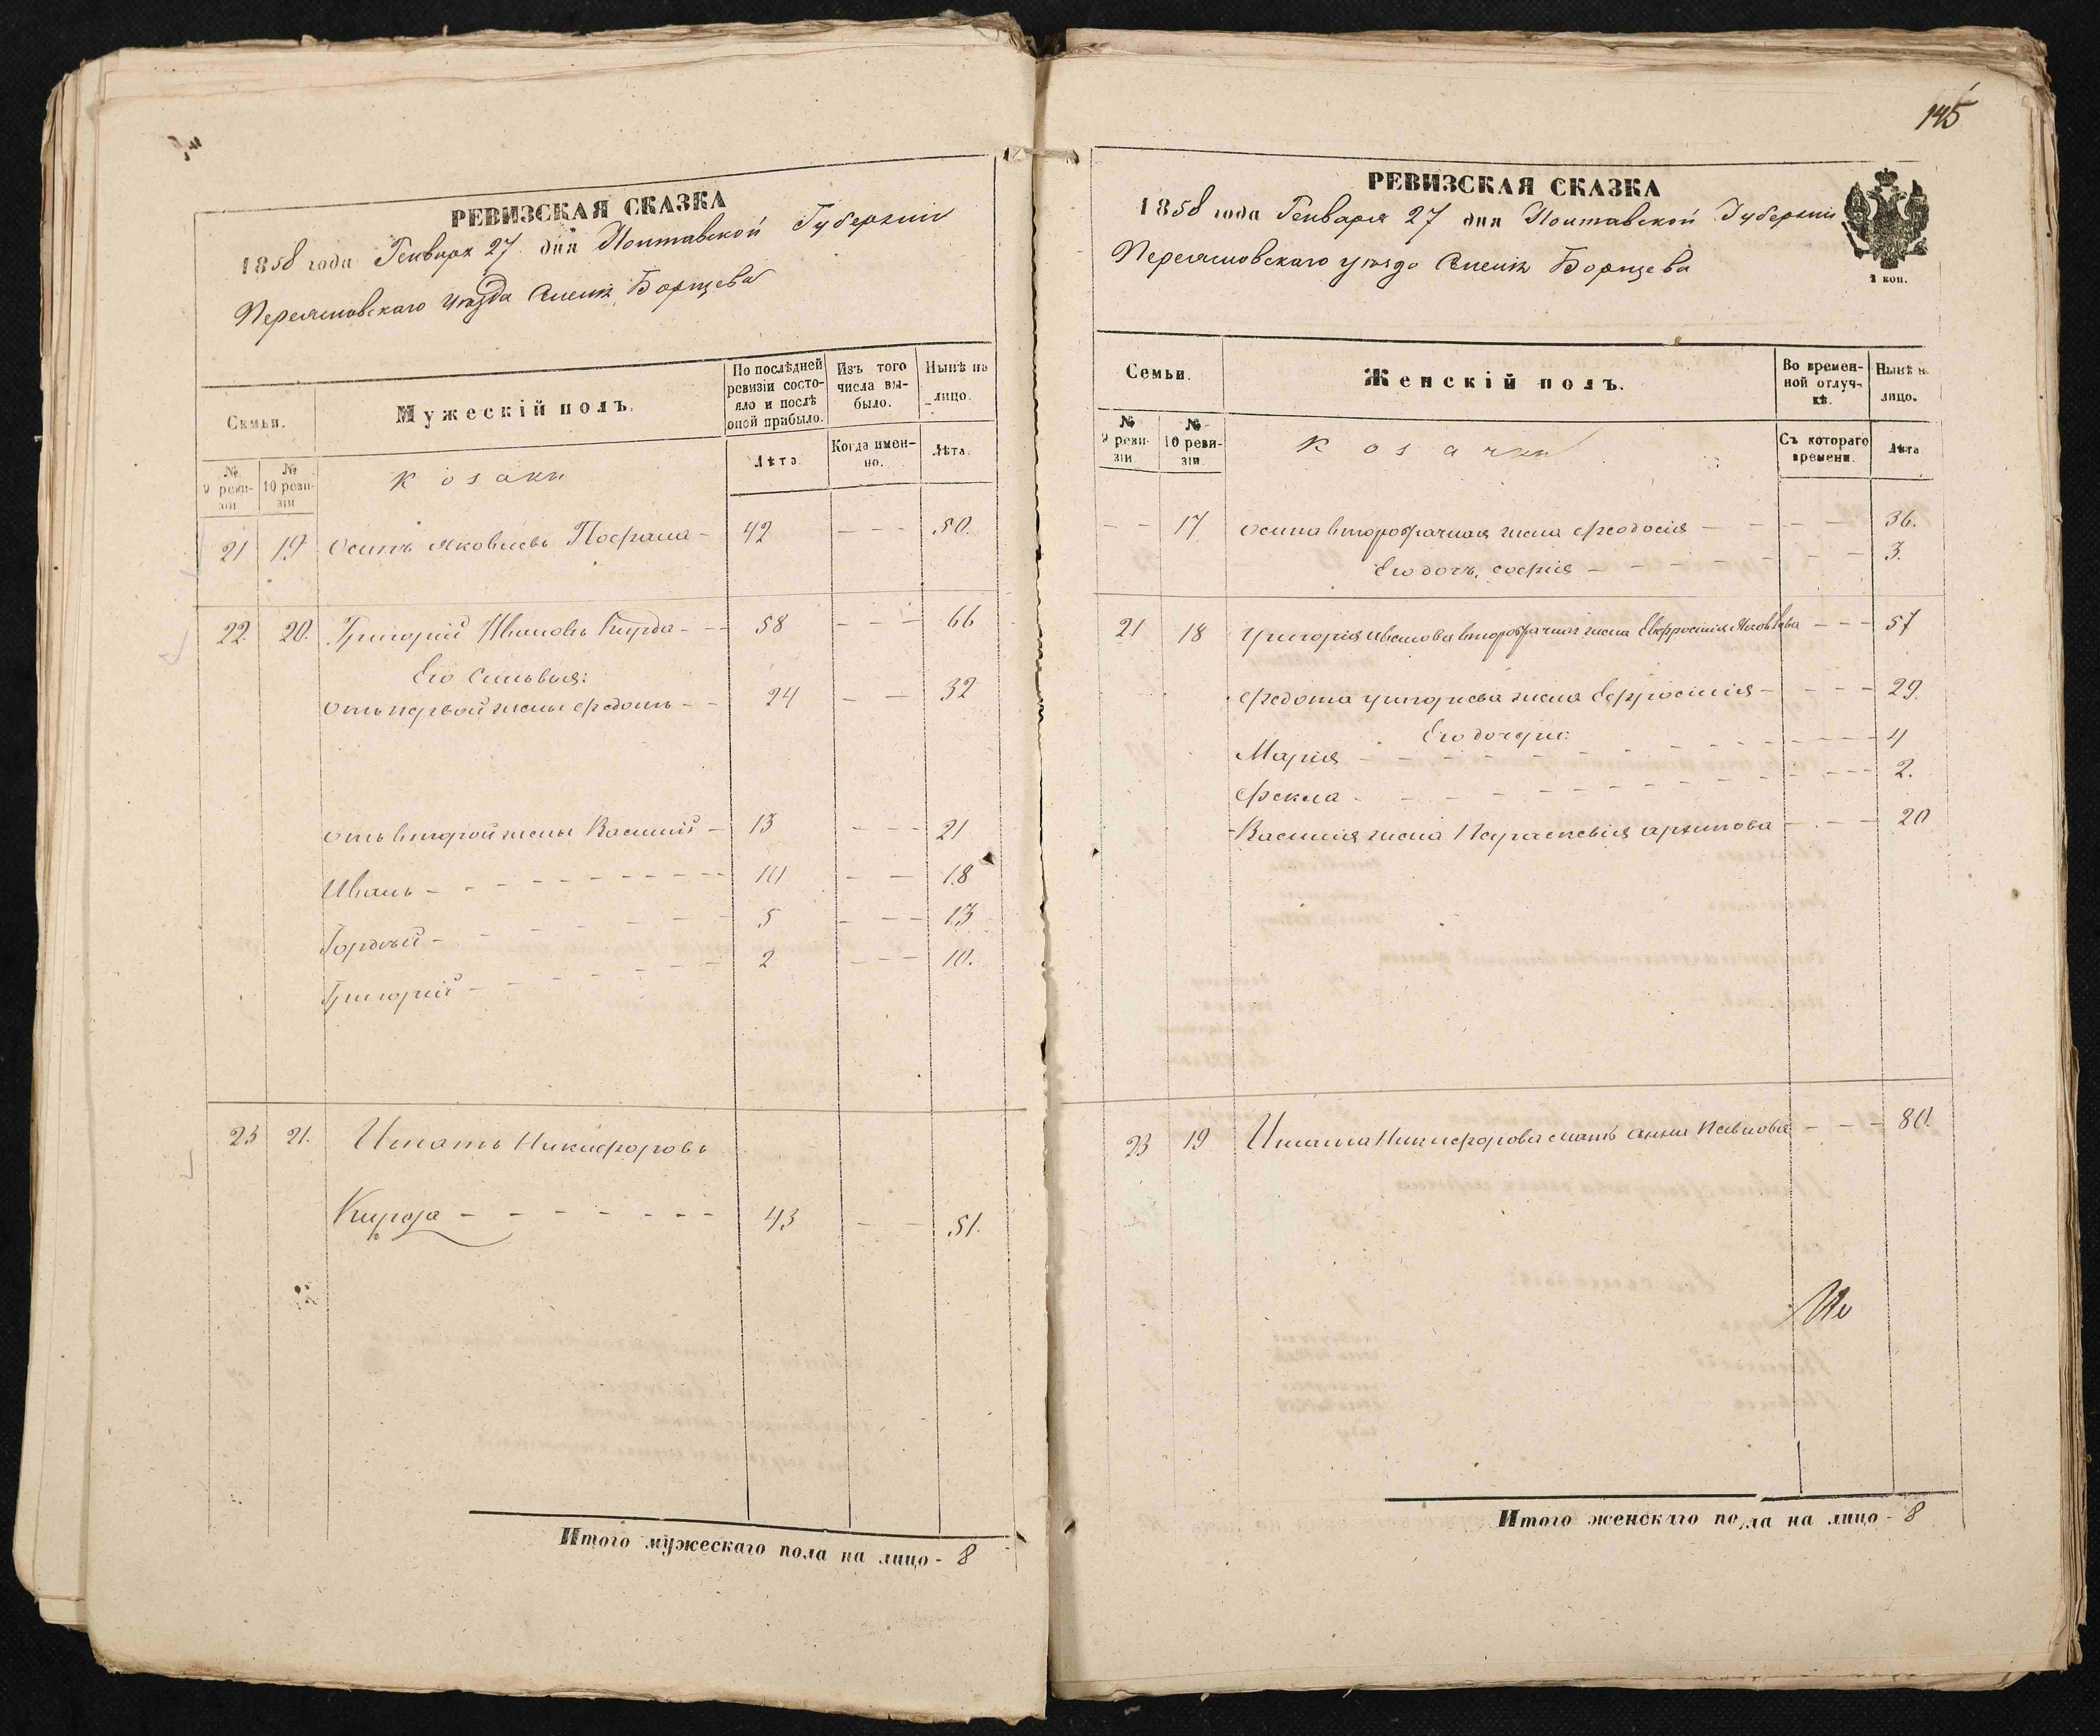 РЕВИЗСКАЯ СКАЗКА
1858 года Генваря 27 дня Полтавской Губернии
Переяславского уѣзда Борщева
Семьи.
Мужескій полъ.
По послѣдней ревизіи состояло и послѣ оной прибыло.
Изъ того числа выбыло.
Нынѣ на лицо.
№ 9 ревизіи
№ 10 ревизіи
Козаки
Лѣта
Когда именно.
Лѣта.
21 19 Осипъ Яковлевъ - 42 - - - 50.
22. 20. Григорій Ивановъ Кирда - - 58 - - - 66
Его сыновья:
отъ первой жены Федотъ - - 24 - - 32
отъ второй жены Василий - 13 - - - 21
Иванъ - - - - - - - - - 10 - - 18
Гордѣй - - - - - - - 5 - - - 13
Григорій - - - - - - 2 - - - 10.
23 21. Игнатъ Никифоровъ
Кирда - - - - - - - 43 - - 51.
Итого мужескаго пола на лицо - 8
145
РЕВИЗСКАЯ СКАЗКА
1858 года Генваря 27 дня Полтавской Губернии
Переяславского уѣзда Борщева
1 коп.
Семьи.
Женскій полъ.
Во временной отлучкѣ.
Нынѣ на лицо.
№ 9 ревизіи
№ 10 ревизіи
Козачки
Съ котораго времени.
Лѣта
- - 17 Осипа второбрачная жена Феодосия - - - - 36.
Его дочь София - - - - - - - 3.
21 18 Григорія Иванова второбрачная жена Евфросинія Яковлева - - - 57
Федота Григорьева жена Ефросинія - - - - 29.
Его дочери:
Марія - - - - - - - - - - 4
Фекла - - - - - - - - - 2.
Василия жена Параскевія Архипова - - - 20
23 19 Игната Никифорова мать Анна Павлова - - - 80.
Итого женскаго пола на лицо - 8